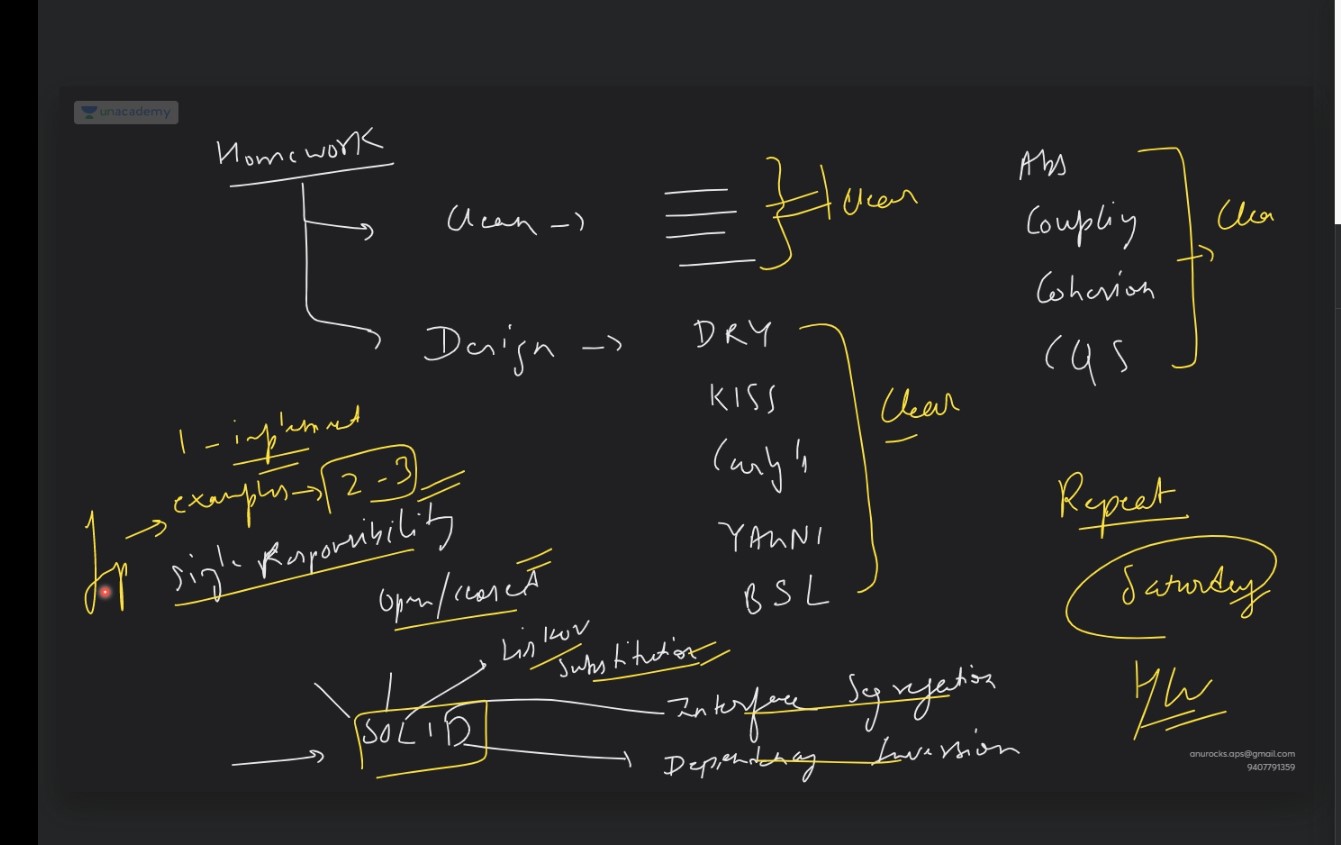 unacademy
Homework
Clean ->
Clear
Design ->
DRY
KISS
Curly's
YAGNI
BSL
Clear
Abs
Coupling
Cohesion
CQS
Clea
1 - implement
examples -> 2-3
Single Responsibility
Open/closed
Liskov
Substitution
SOLID
Interface Segregation
Dependency Inversion
Repeat
Saturday
HW
anurocks.aps@gmail.com
9407791359